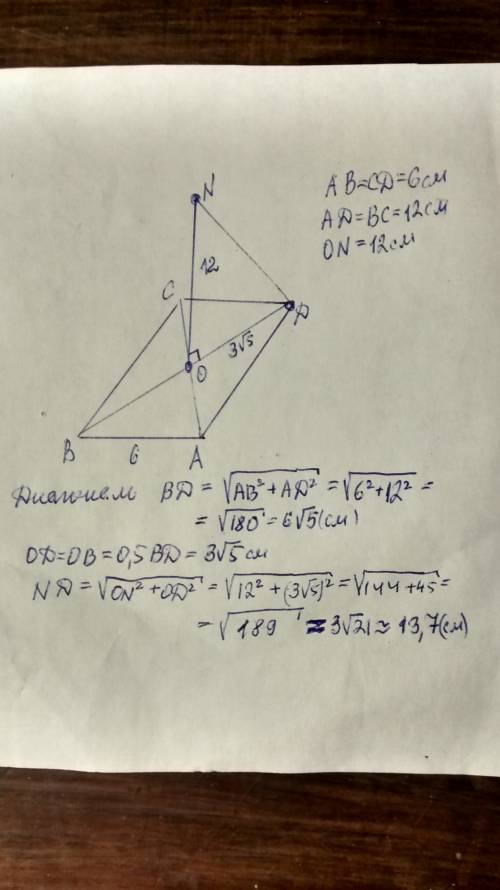 N
AB=CD=6см
AD=BC=12см
ON=12см
12
C
D
3√5
O
B
6
A
BD = √AB²+AD² = √6²+12² =
= √180 = 6√5(см)
OD=OB=0,5BD=3√5см
ND=√ON²+OD² = √12²+(3√5)² = √144+45 =
= √189 ≈ 3√21 ≈ 13,7(см)